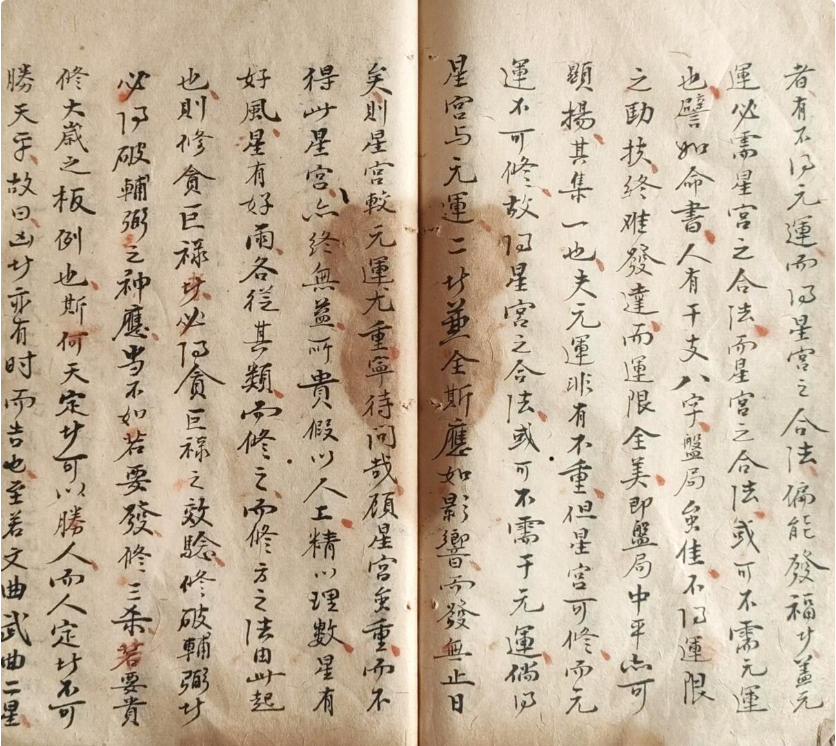 者有不得元運而得星宮之合法偏能發福者蓋元
運必需星宮之合法而星宮之合法或可不需元運
也譬如命書人有干支八字盤局虽佳不得運限
之助扶終难發達而運限全美即盤局中平亦可
顯揚其集一也夫元運非有不重但星宮可修而元
運不可修故得星宮之合法或可不需于元運倘得
星宮与元運二者兼全斯應如影響而發無止日
矣則星宮較元運尤重寧待问哉顧星宮虽重而不
得此星宮亦終無益所貴假以人工精以理数星有
好風星有好雨各從其類而修之而修方之法由此起
也則修貪巨禄者必得貪巨禄之效驗修破輔弼者
必得破輔弼之神應当不如若要發修三杀若要貴
修大歲之板例也斯何天定者可以勝人而人定者不可
勝天乎故曰凶者亦有时而吉也至若文曲武曲二星